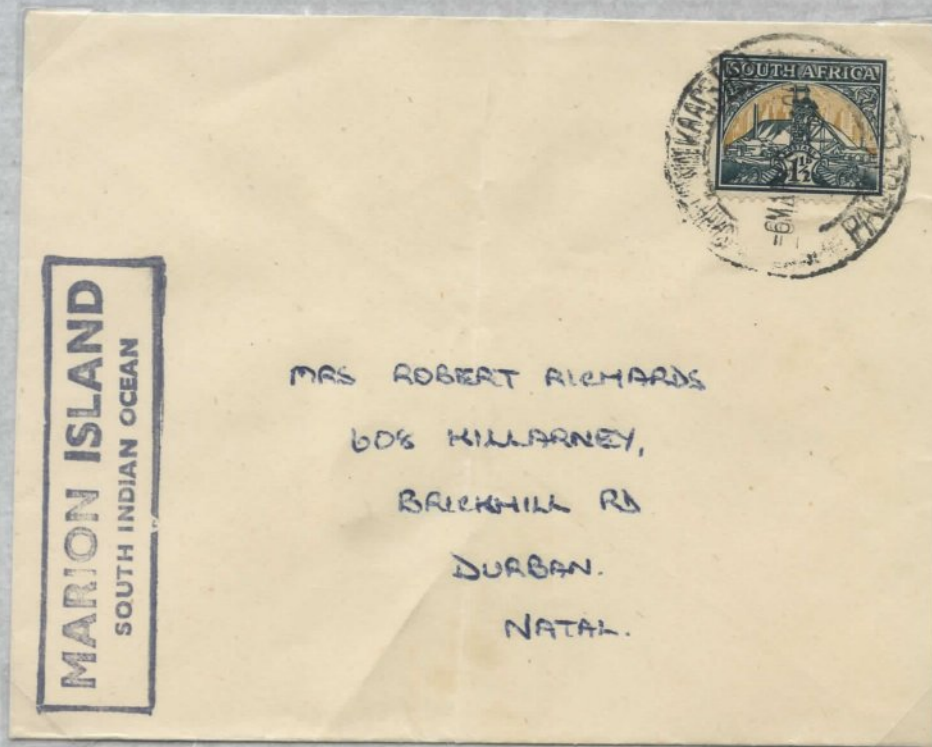 SOUTH AFRICA
1½
6 MA
MARION ISLAND
SOUTH INDIAN OCEAN
MRS ROBERT RICHARDS
608 KILLARNEY,
BRICKHILL RD
DURBAN.
NATAL.